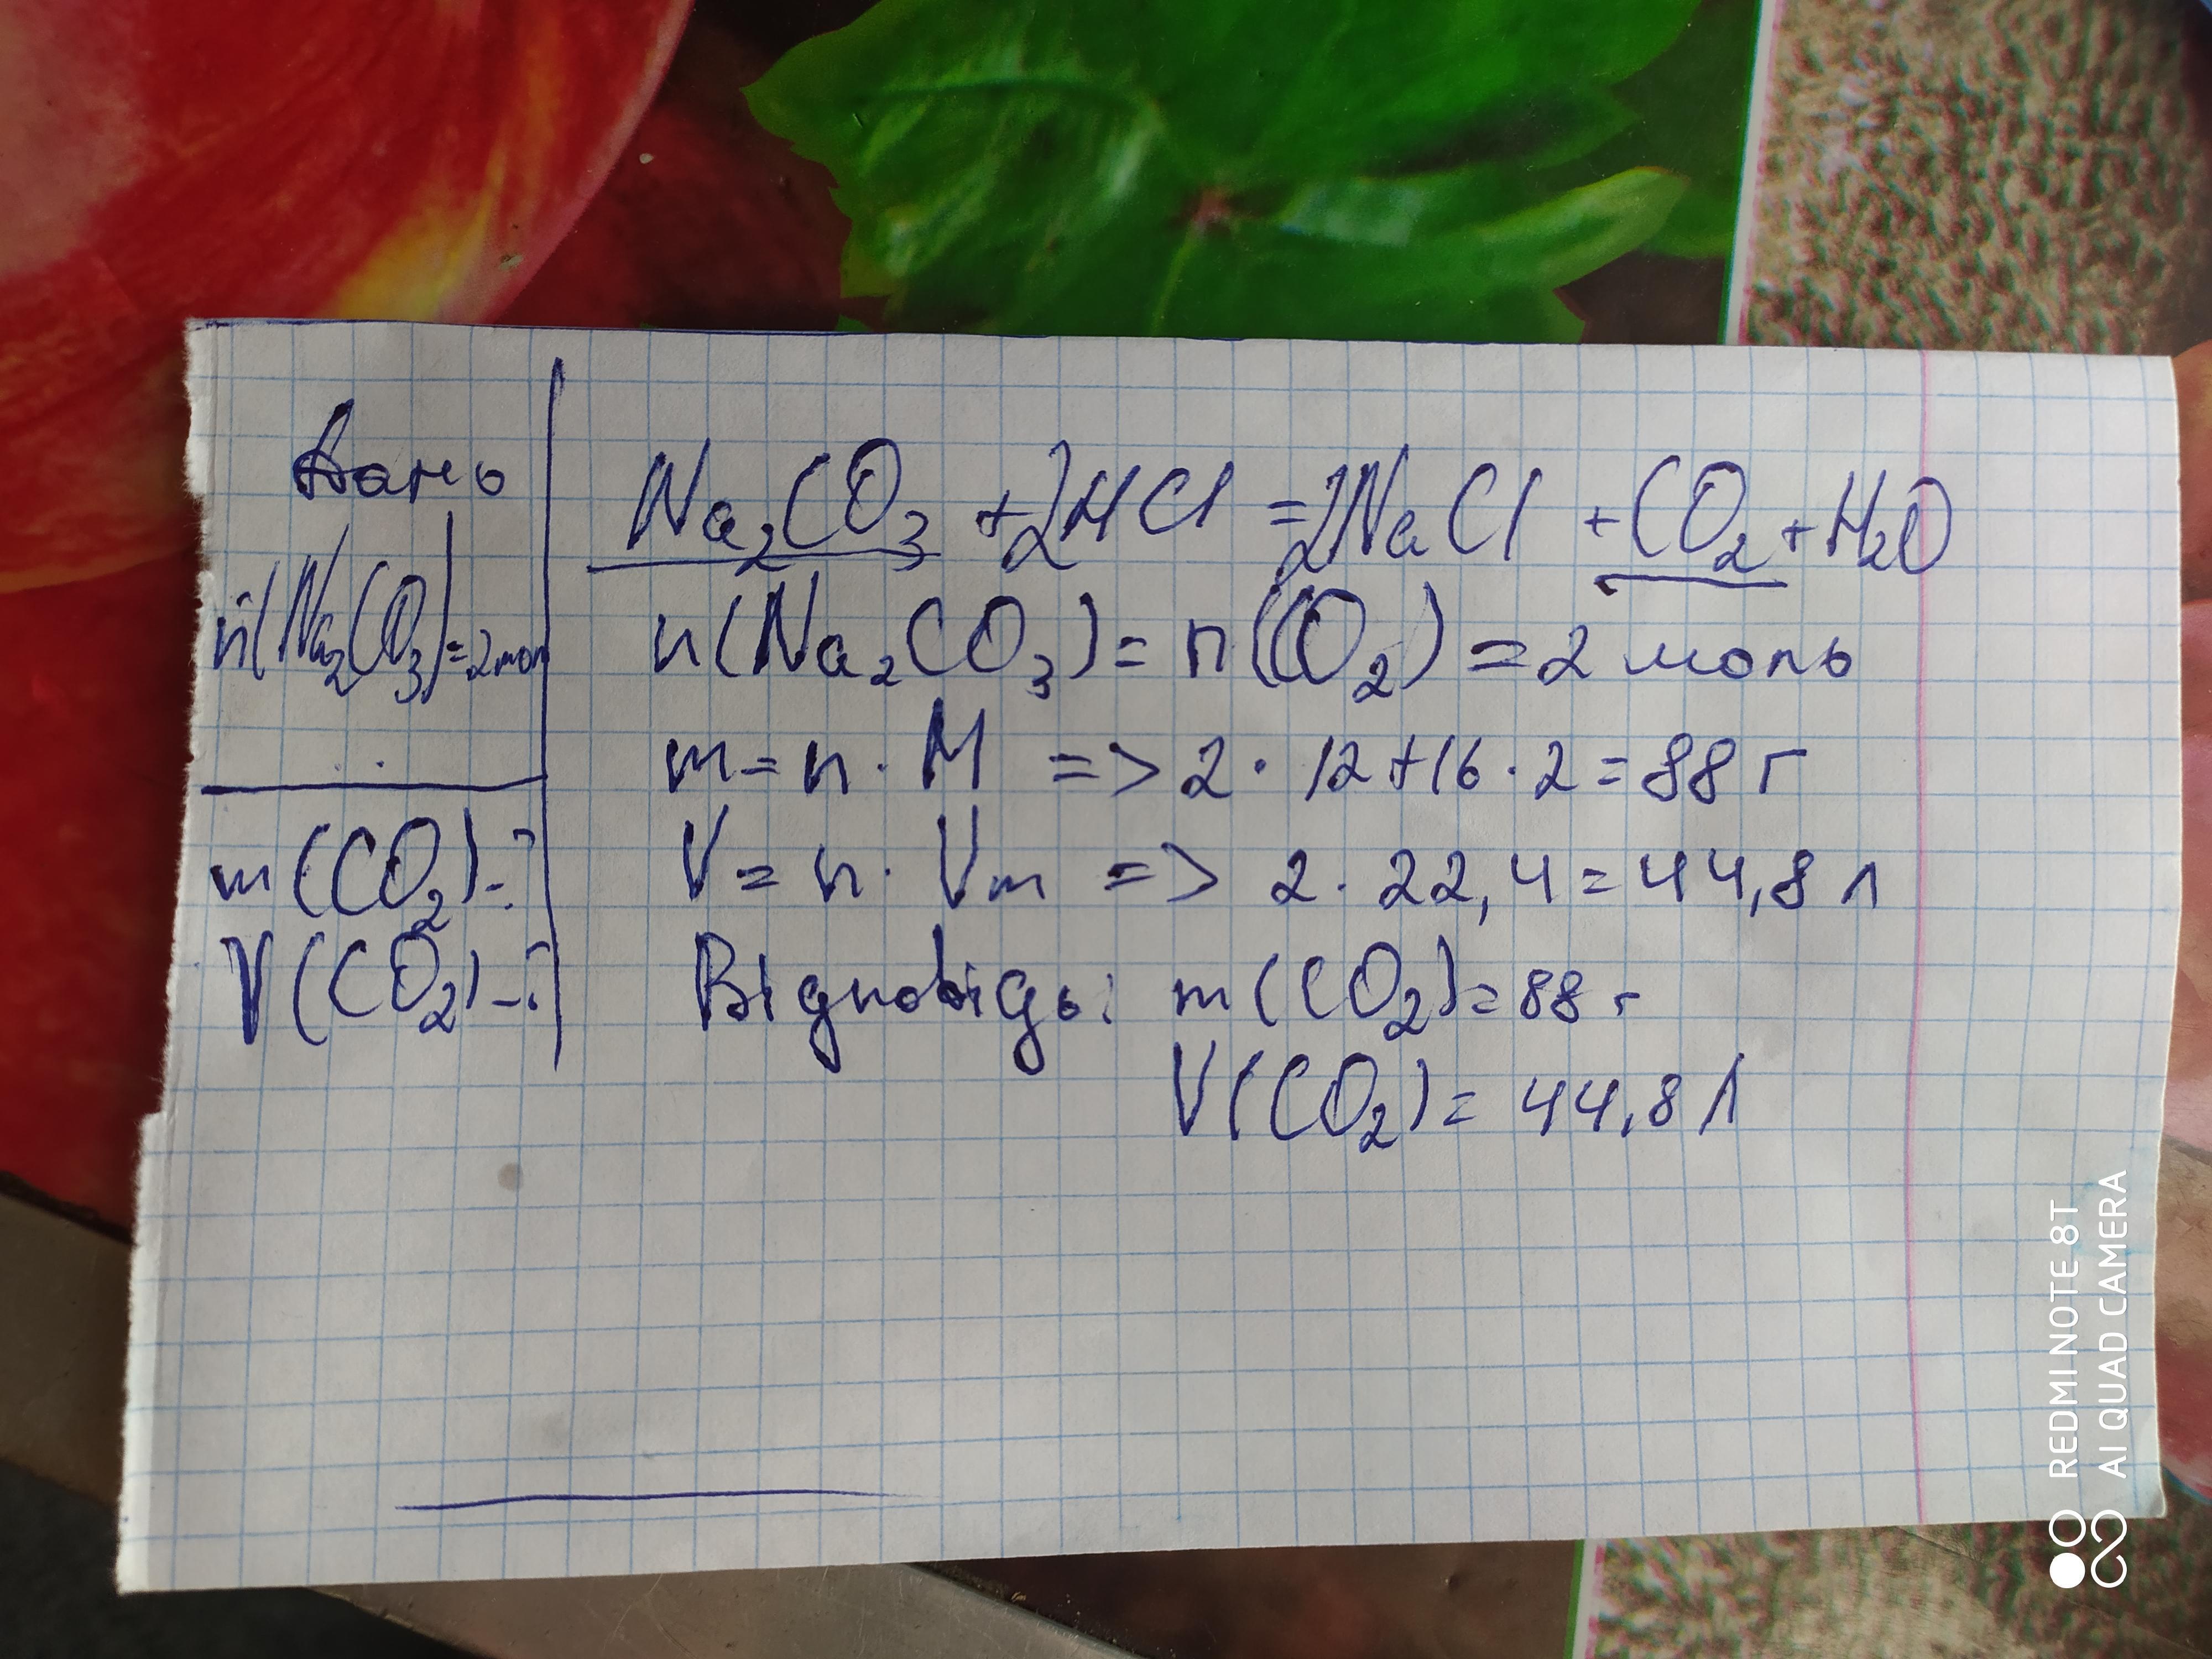 Дано
n(Na₂CO₃)=2мол
m(CO₂)-?
V(CO₂)-?
Na₂CO₃ +2HCl =2NaCl +CO₂+H₂O
n(Na₂CO₃)= n(CO₂) =2 моль
m=n·M => 2·12+16·2=88 г
V=n·Vm => 2·22,4=44,8 л
Відповідь: m(CO₂)=88 г
V(CO₂)= 44,8 л
REDMI NOTE 8T
AI QUAD CAMERA